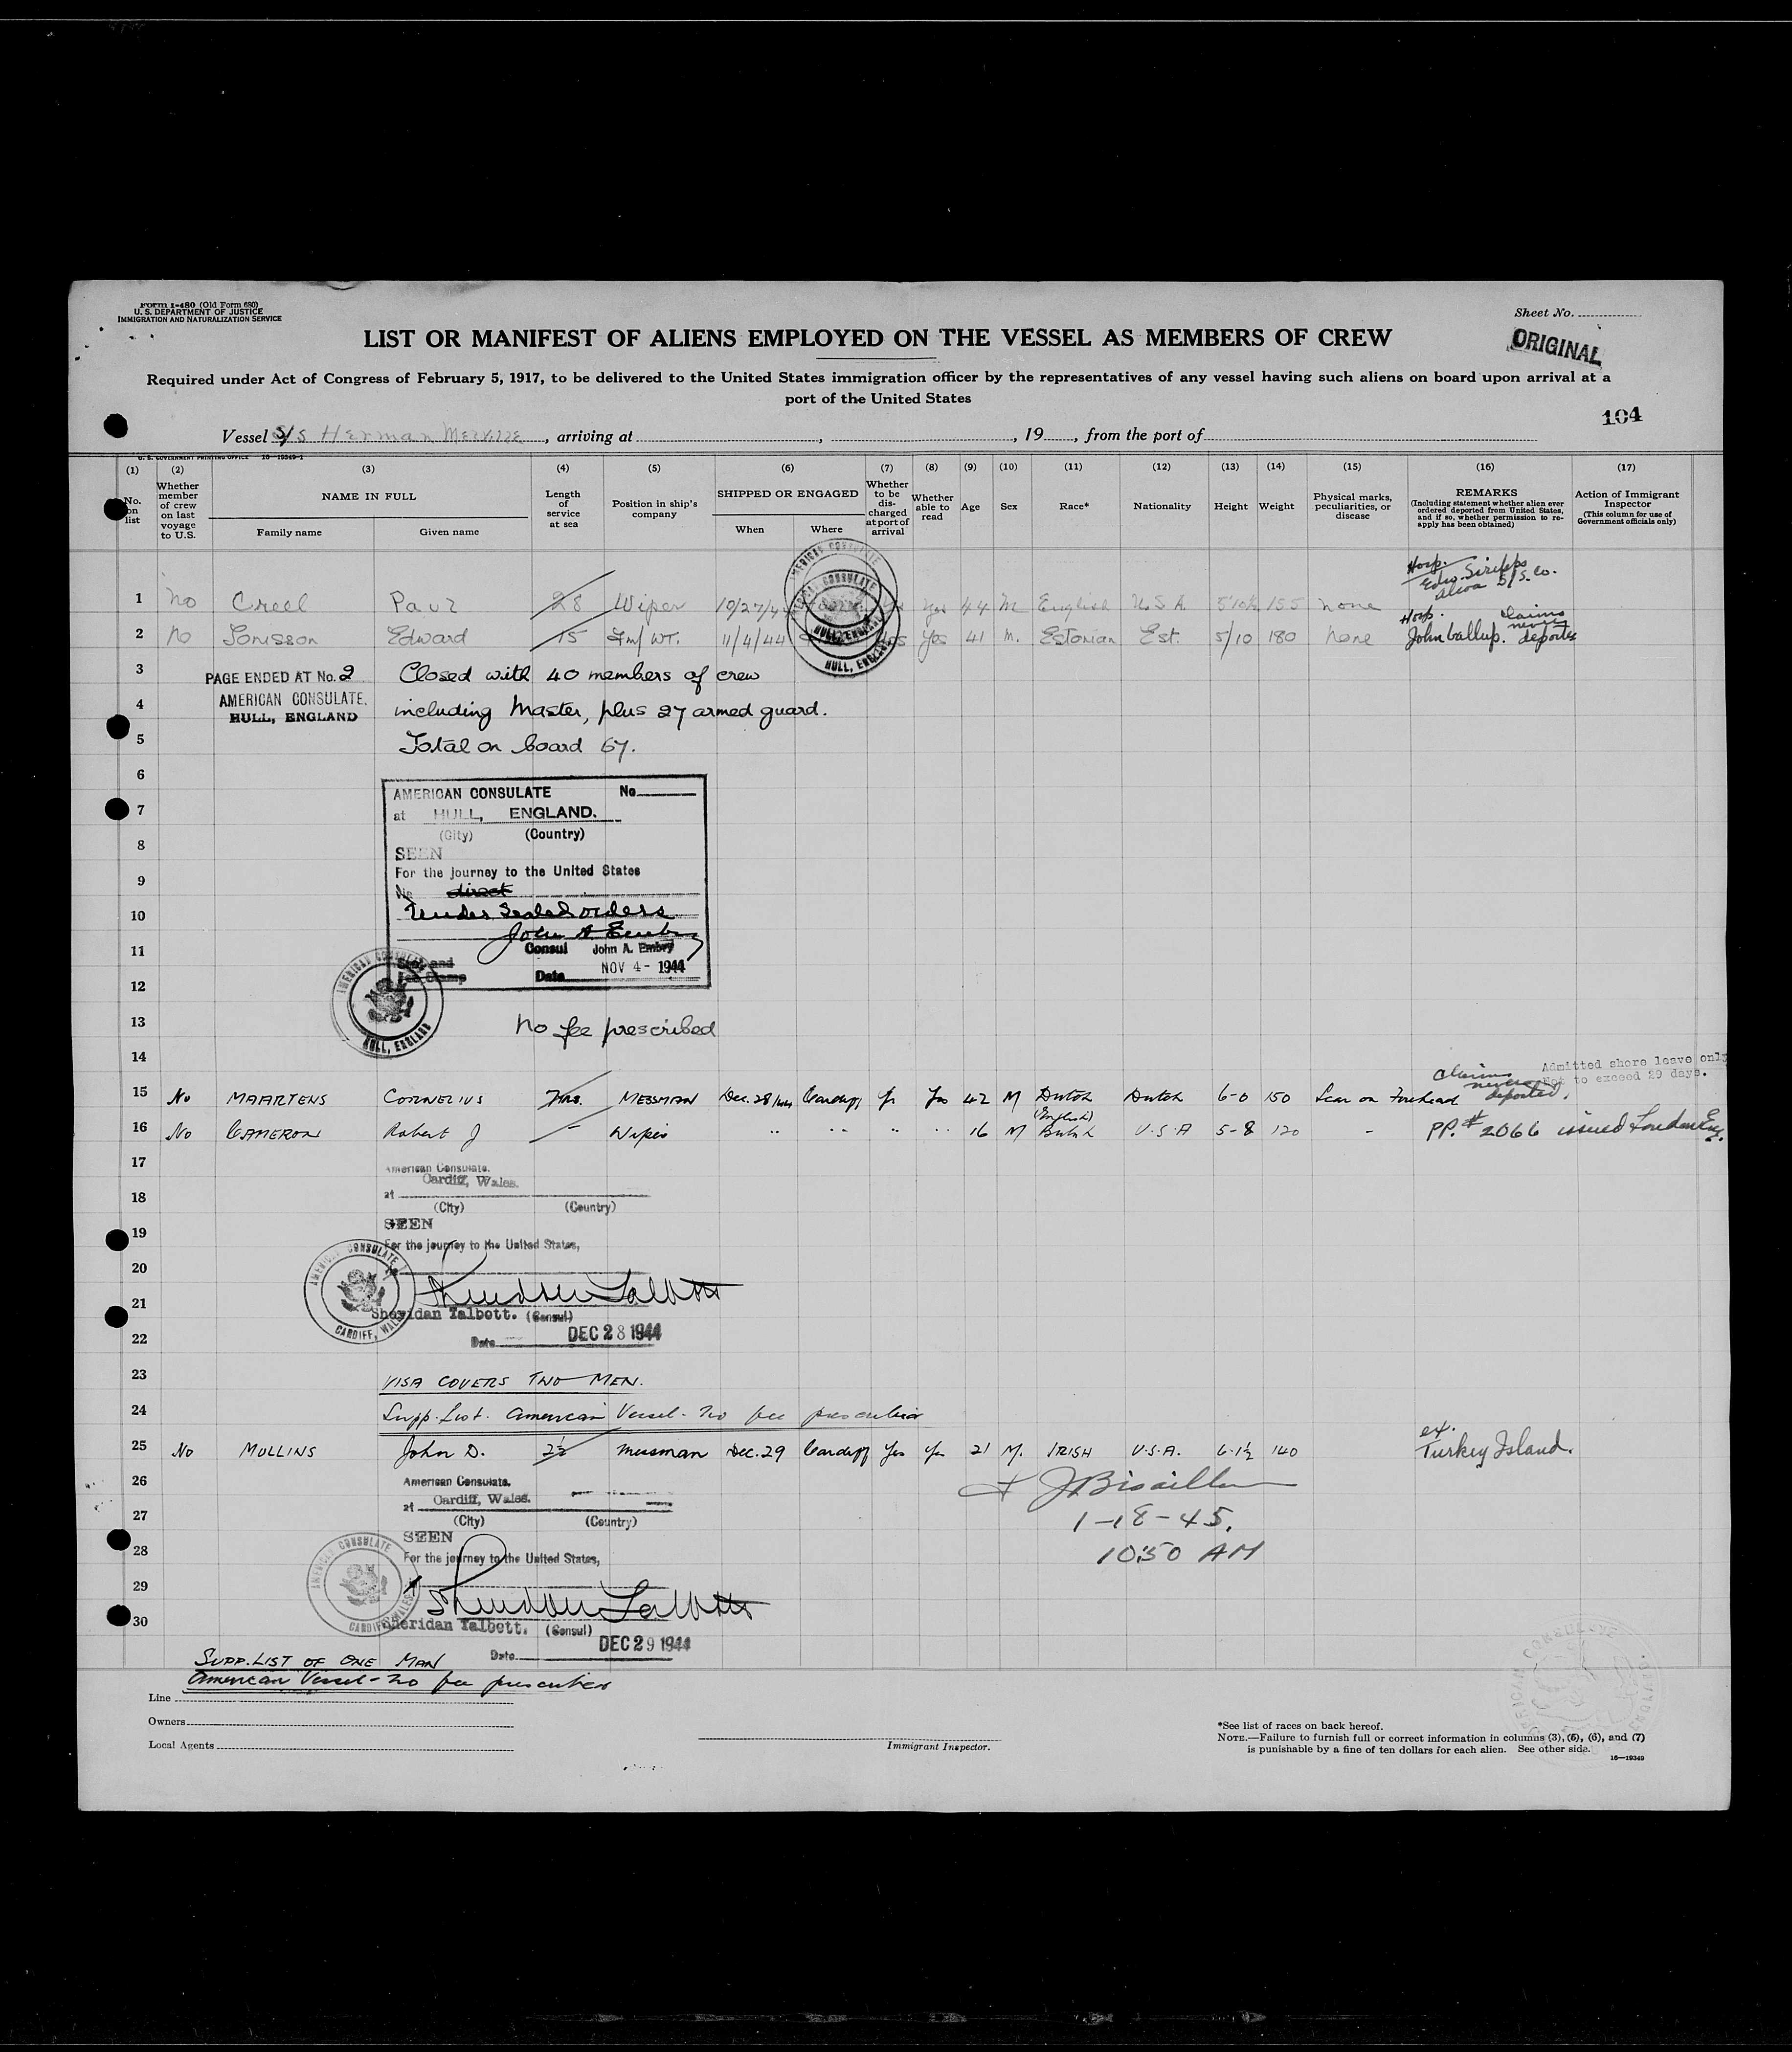 Form I-480 (Old Form 680)
U. S. DEPARTMENT OF JUSTICE
IMMIGRATION AND NATURALIZATION SERVICE
Sheet No.
LIST OR MANIFEST OF ALIENS EMPLOYED ON THE VESSEL AS MEMBERS OF CREW
ORIGINAL
Required under Act of Congress of February 5, 1917, to be delivered to the United States immigration officer by the representatives of any vessel having such aliens on board upon arrival at a
port of the United States
104
Vessel S/S Herman Melville, arriving at , , 19 , from the port of
U. S. GOVERNMENT PRINTING OFFICE 16—19349-1
(1) (2) (3) (4) (5) (6) (7) (8) (9) (10) (11) (12) (13) (14) (15) (16) (17)
No. on list
Whether member of crew on last voyage to U.S.
NAME IN FULL
Family name
Given name
Length of service at sea
Position in ship's company
SHIPPED OR ENGAGED
When
Where
Whether to be discharged at port of arrival
Whether able to read
Age
Sex
Race*
Nationality
Height
Weight
Physical marks, peculiarities, or disease
REMARKS
(Including statement whether alien ever ordered deported from United States, and if so, whether permission to reapply has been obtained)
Action of Immigrant Inspector
(This column for use of Government officials only)
Hosp.
Edw. Scripps
Alcoa S/S. Co.
1 No Creel Paul 28 Wiper 10/27/44 Yes 44 M English U.S.A. 5'10½ 155 none
Hosp. claims never
2 No Edward 15 Fm/WT. 11/4/44 Yes Yes 41 M. Estonian Est. 5/10 180 None John Gallup. deported
3 PAGE ENDED AT No. 2 Closed with 40 members of crew
4 AMERICAN CONSULATE, including Master, plus 27 armed guard.
HULL, ENGLAND
5 Total on board 67.
6
AMERICAN CONSULATE No
7 at HULL, ENGLAND.
(City) (Country)
8 SEEN
9 For the journey to the United States
direct
10 Under sealed orders
John A Embry
11 Consul John A. Embry
Date NOV 4 - 1944
12
AMERICAN CONSULATE
HULL, ENGLAND
13 No fee prescribed
14
Admitted shore leave only
Not to exceed 29 days.
claims never deported.
15 No MAARTENS CORNELIUS MESSMAN Dec. 28/44 Cardiff Yes Yes 42 M Dutch Dutch 6-0 150 Scar on Forehead
(English)
16 No CAMERON Robert J - Wiper " " " " 16 M British U.S.A 5-8 120 - PP. # 2066 issued London Eng.
17 American Consulate.
Cardiff, Wales.
18 at
(City) (Country)
19 SEEN
For the journey to the United States,
20
AMERICAN CONSULATE
CARDIFF, WALES
21 Sheridan Talbott
Sheridan Talbott. (Consul)
22 Date DEC 28 1944
23 VISA COVERS TWO MEN.
24 Supp. List. American Vessel - No fee prescribed
ex.
25 No MULLINS John D. 2½ Messman Dec. 29 Cardiff Yes Yes 21 M. IRISH U.S.A. 6-1½ 140 Turkey Island.
26 American Consulate.
at Cardiff, Wales.
27 (City) (Country)
1-18-45.
SEEN
28 For the journey to the United States,
10:50 AM
29
AMERICAN CONSULATE
CARDIFF, WALES
Sheridan Talbott
30 Sheridan Talbott. (Consul)
Date DEC 29 1944
SUPP. LIST OF ONE MAN
American Vessel - No fee prescribed
Line
Owners
Local Agents
Immigrant Inspector.
*See list of races on back hereof.
NOTE.—Failure to furnish full or correct information in columns (3), (5), (6), and (7)
is punishable by a fine of ten dollars for each alien. See other side.
16—19349